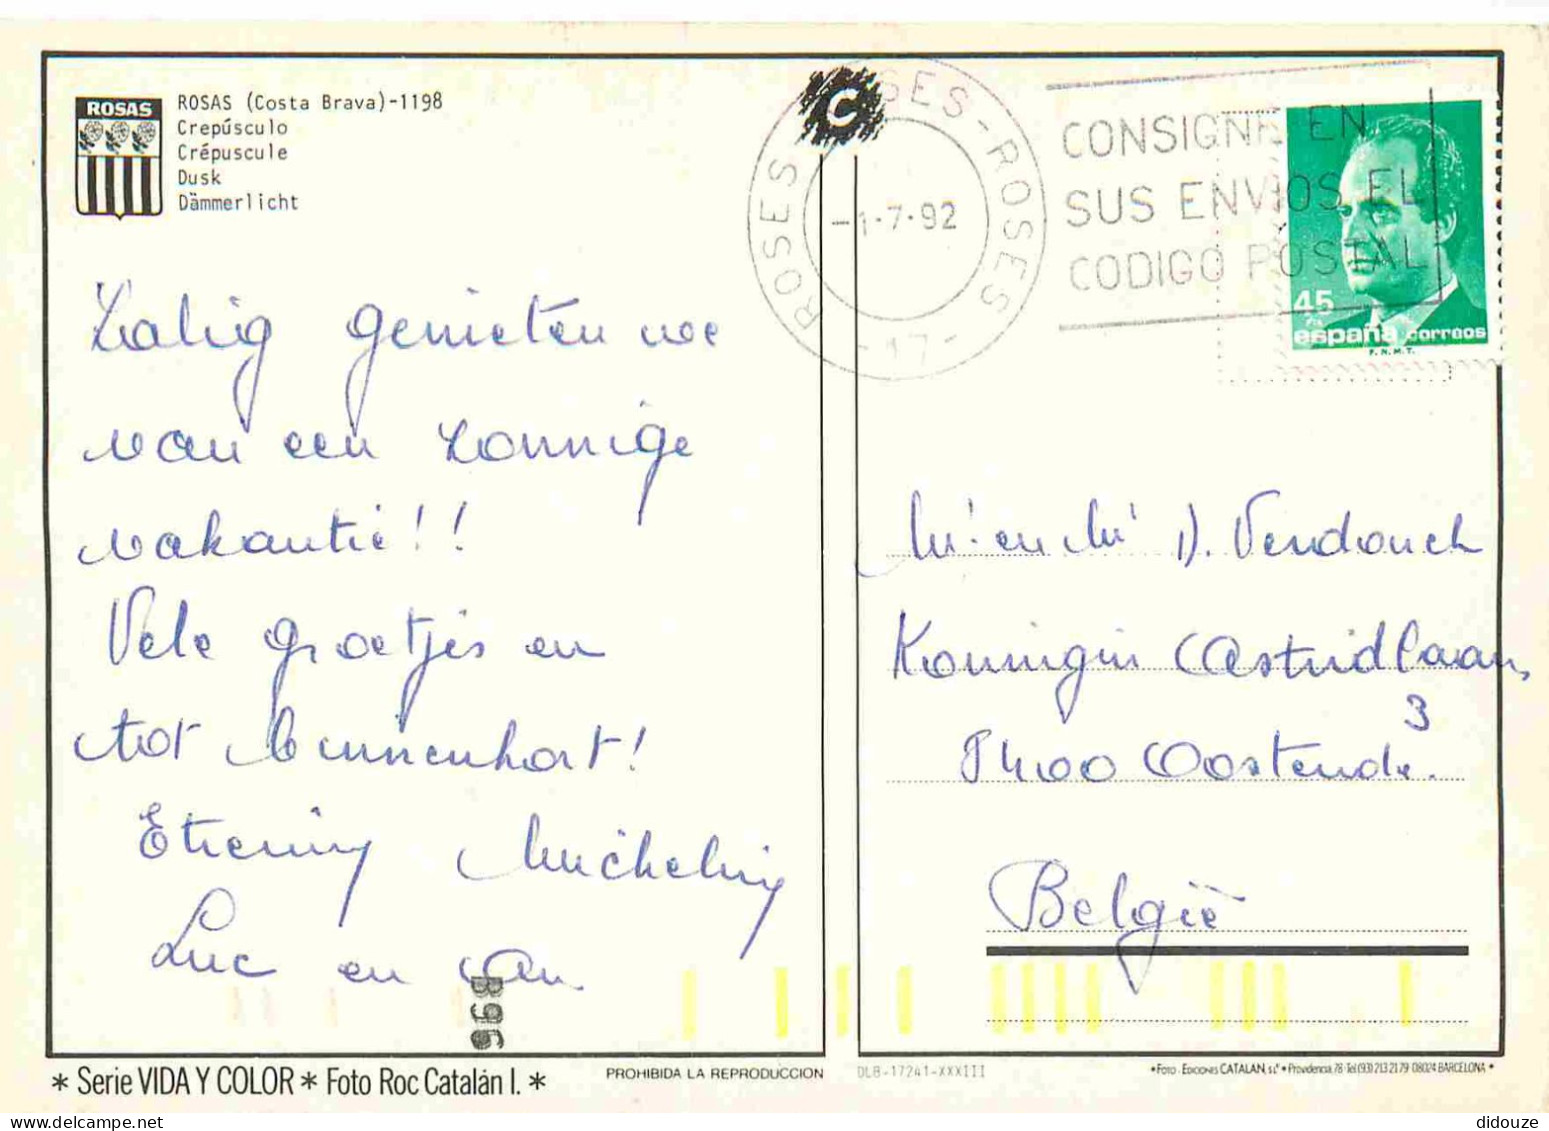 ROSAS
ROSAS (Costa Brava)-1198
Crepúsculo
Crépuscule
Dusk
Dämmerlicht
C
ROSES - ROSES - ROSES - 17 -
-1-7-92
CONSIGNE EN
SUS ENVIOS EL
CODIGO POSTAL
45
PTA
españa correos
F.N.M.T.
Zalig genieten we
van een zonnige
vakantie!!
Vele groetjes en
tot binnenkort!
Etienne, Micheline,
Luc en An
Mr en Mr D. Vendonck
Koningin Astridlaan,
3
8400 Oostende.
België
B96
* Serie VIDA Y COLOR * Foto Roc Catalán I. *
PROHIBIDA LA REPRODUCCION
DLB-17241-XXXIII
*Foto. EDICIONES CATALAN, s.l.* * Providencia, 78 · Tel (93) 213 21 79 08024 BARCELONA *
didouze